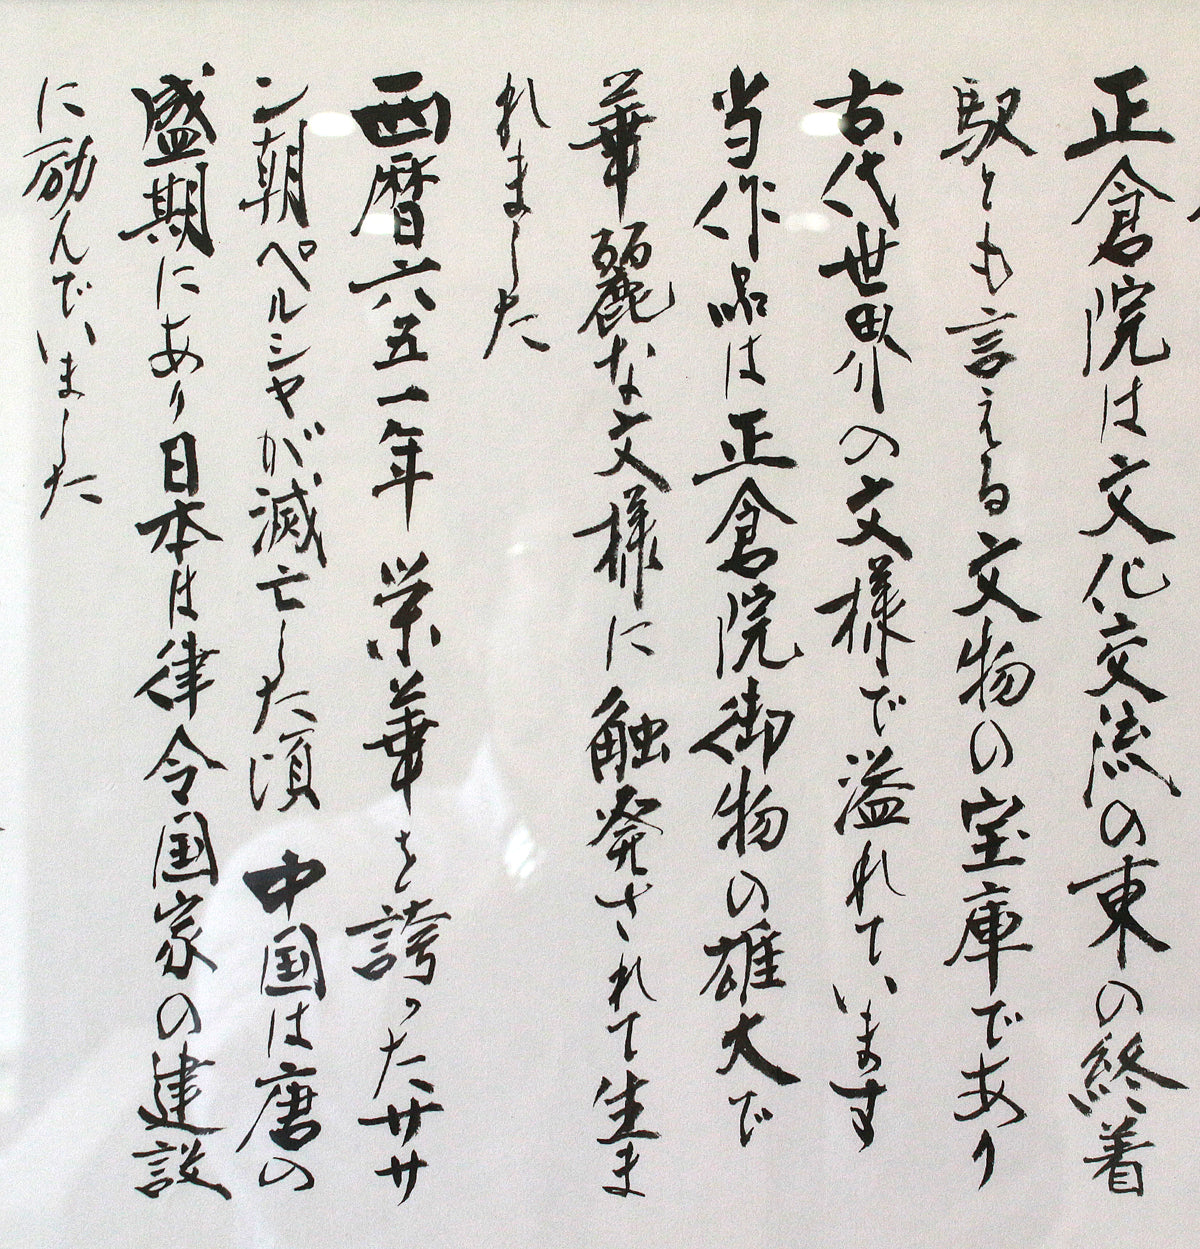 正倉院は文化交流の東の終着
駅とも言える文物の宝庫であり
古代世界の文様で溢れています
当作品は正倉院御物の雄大で
華麗な文様に触発されて生ま
れました
西暦六五一年 栄華を誇ったササ
ン朝ペルシャが滅亡した頃 中国は唐の
盛期にあり日本は律令国家の建設
に励んでいました